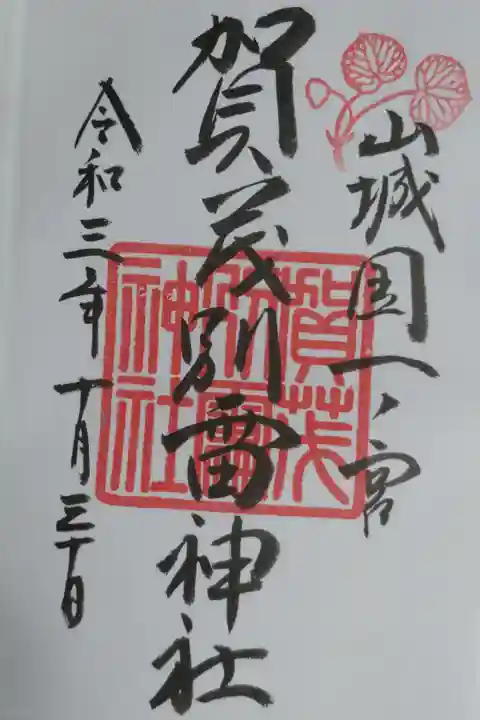 山城国一ノ宮
賀茂別雷神社
令和三年十月三十日
賀茂
別雷
神社